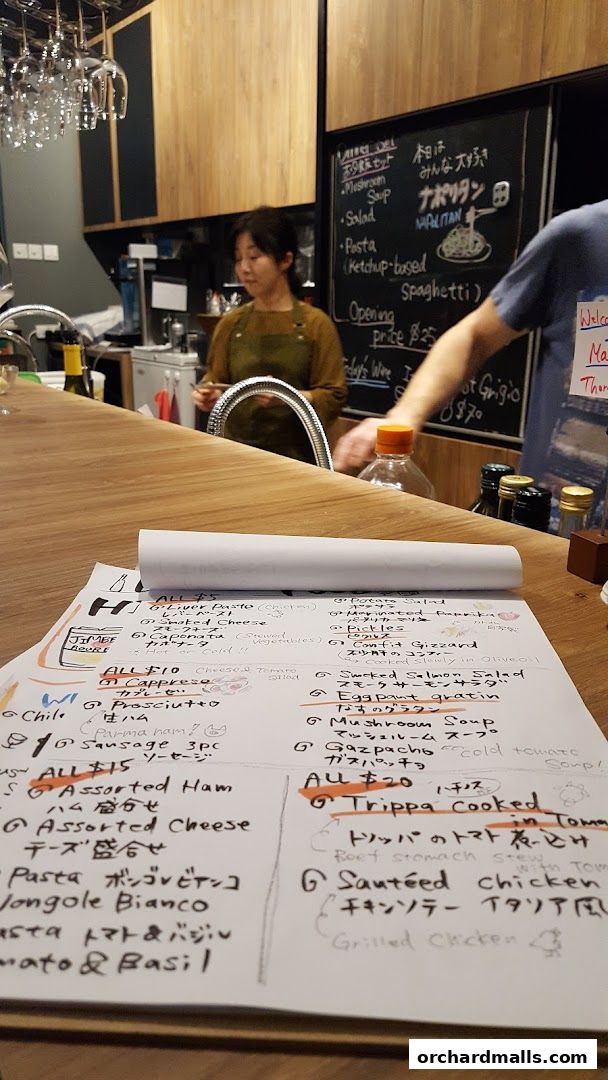 本日は
みんな大好き
ナポリタン
NAPOLITAN
・Mushroom
Soup
・Salad
・Pasta
(Ketchup-based
spaghetti)
Opening
price $25
Today's Wine
Grigio
$70
ALL $5
Liver Pasto (Chicken)
レバーペースト
Smoked Cheese
スモークチーズ
Caponata (Stewed vegetables)
カポナータ
Hot or Cold!!
Potato Salad
ポテサラ
Marinated Paprika
パプリカマリネ
Pickles
ピクルス
Confit Gizzard
cooked slowly in Olive oil
JIMBE
ALL $10
Cappreso
Cheese & Tomato
Salad
カプレーゼ
Prosciutto
生ハム
Parma ham?
Sausage 3pc
ソーセージ
Smoked Salmon Salad
スモークサーモンサラダ
Eggpant gratin
なすのグラタン
Mushroom Soup
マッシュルームスープ
Gazpacho
Cold tomato
Soup!
ガスパッチョ
Chile
ALL $15
Assorted Ham
ハム盛合せ
Assorted Cheese
チーズ盛合せ
Pasta ボンゴレビアンコ
Vongole Bianco
asta トマト&バジル
mato & Basil
ALL $20
ハチノス
Trippa cooked
in Toma
トリッパのトマト煮込み
Beef stomach stew
with Tom
Sautéed chicken
チキンソテー イタリア風
Grilled Chicken
orchardmalls.com